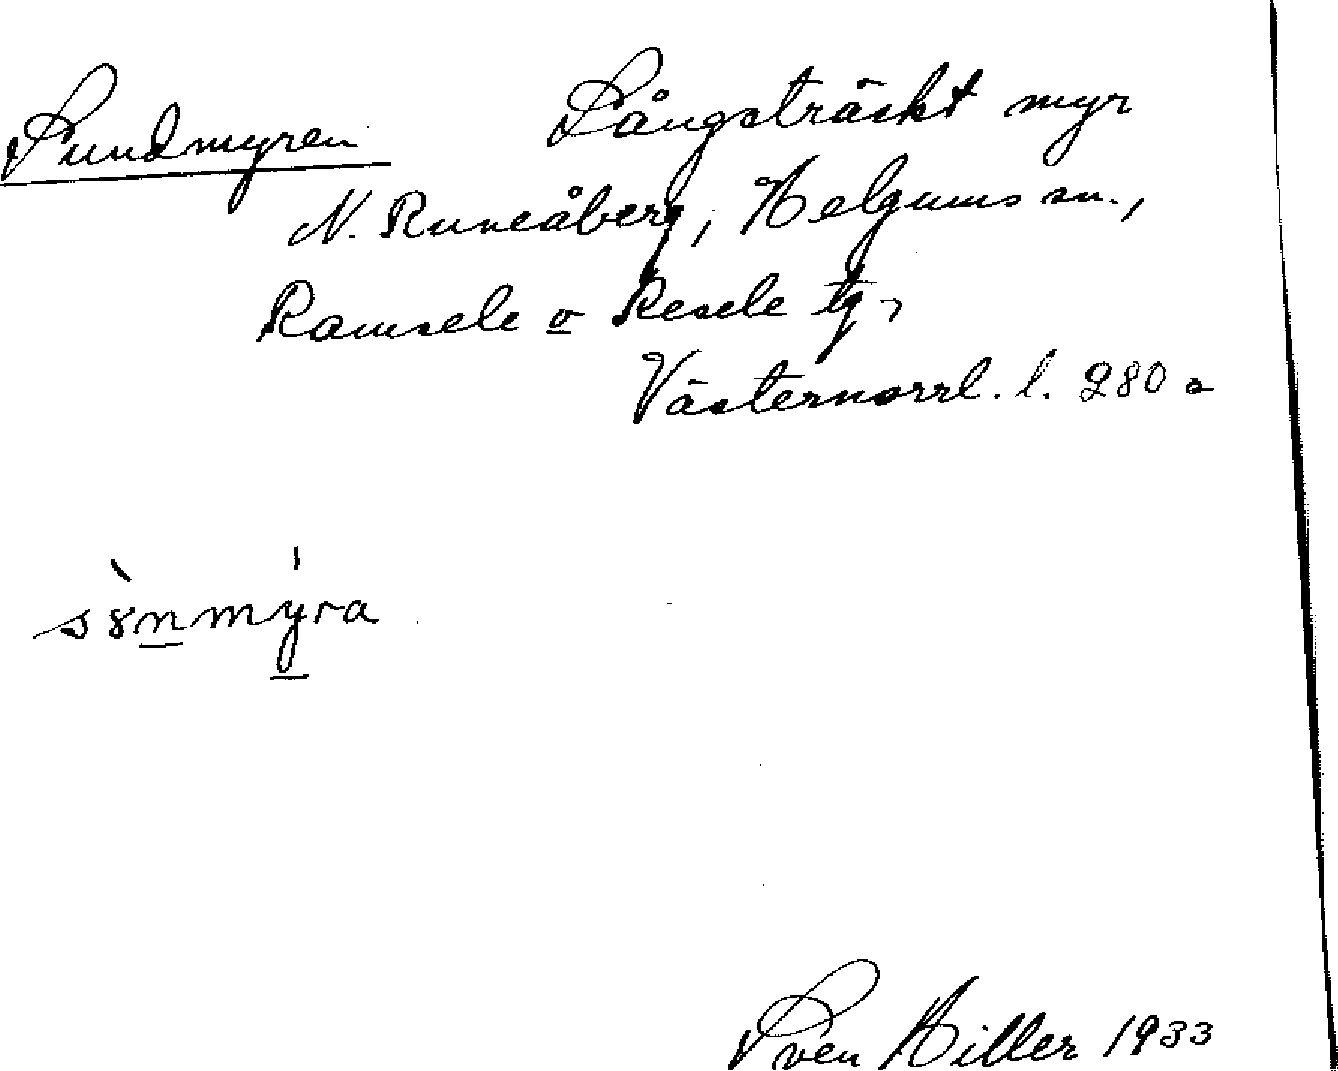 Sundmyren Långsträckt myr
N. Runsåberg, Helgums sn.,
Ramsele o Resele tg,
Västernorrl. l. 280 a
sònmýra
Sven Hiller 1933